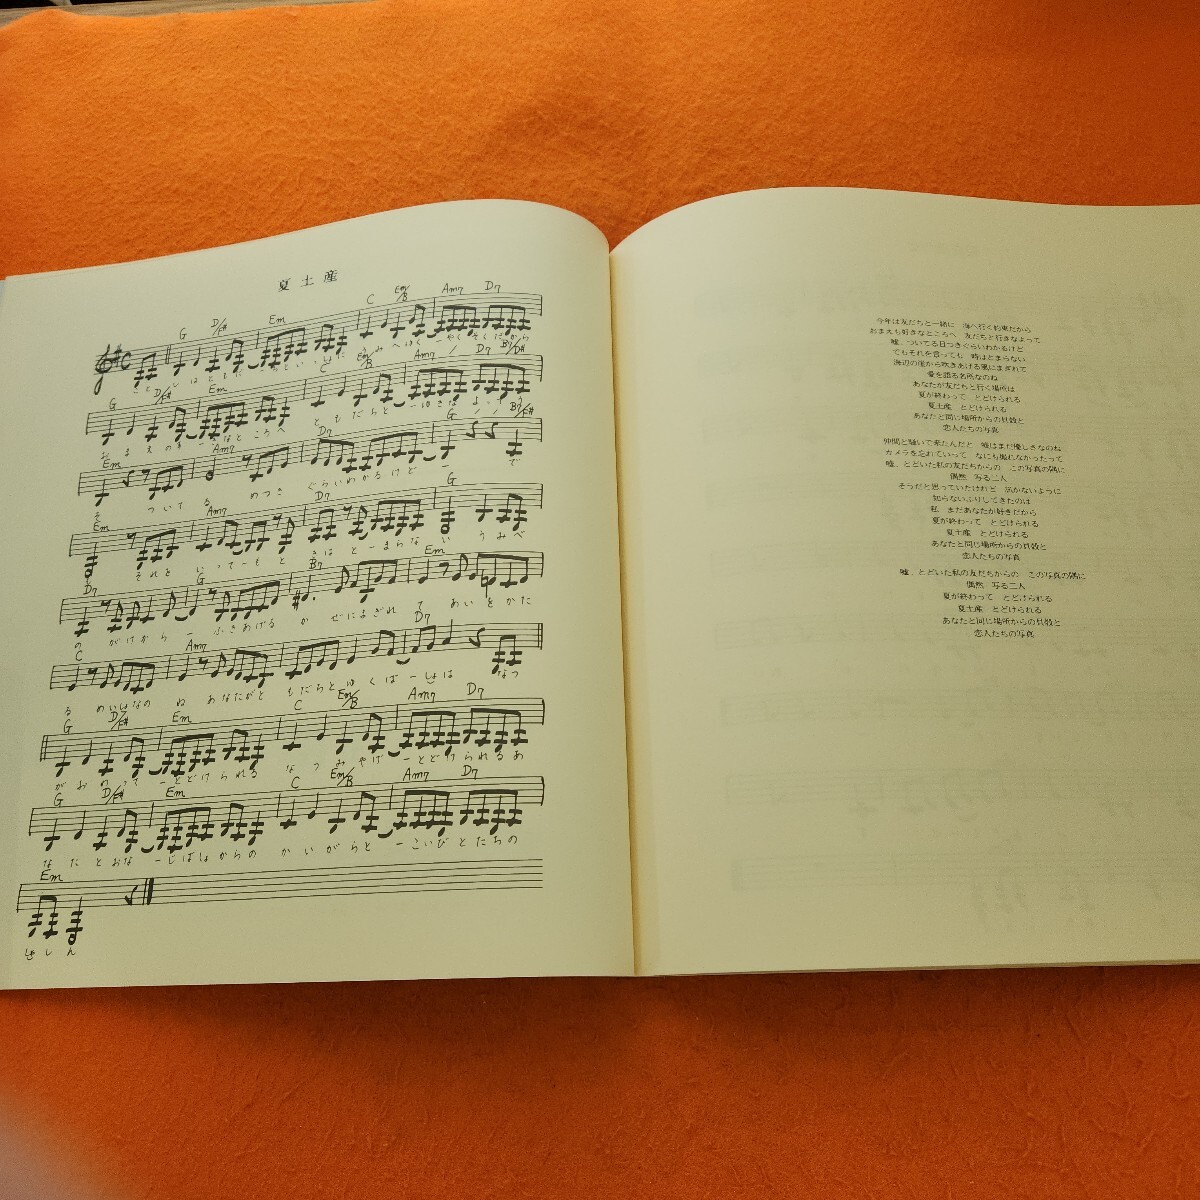 夏土産
G D/F# Em C Em/B Am7 D7
G D/F# Em C Em/B Am7 D7 B7/D#
おまえもすきなところへ ともだちとーゆきなよって
Em Am7 D7 G B7/F#
そ ついてる めつき ぐらいわかるけどー で
Em Am7 D7 G
それを いってーもと きはとーまらない うみべ
D7 G B7 Em
のがけからー ふきあげる かぜにまぎれて あいをかた
C Am7 D7
るめいしょなのね あなたがと もだちとゆくばーしょは なつ
G D/F# Em C Em/B Am7 D7
がおわってーとどけられる なつみやげーとどけられるあ
G D/F# Em C Em/B Am7 D7
なたとおなーじばしょからの かいがらとーこいびとたちの
Em
しゃしん
今年は友だちと一緒に 海へ行く約束だから
おまえも好きなところへ 友だちと行きなよって
嘘、ついてる目つきぐらいわかるけど
でもそれを言っても 時はとまらない
海辺の崖から吹きあげる風にまぎれて
愛を語る名所なのね
あなたが友だちと行く場所は
夏が終わって とどけられる
夏土産 とどけられる
あなたと同じ場所からの貝殻と
恋人たちの写真
仲間と騒いで来たんだと 嘘はまだ優しさなのね
カメラを忘れていって なにも撮れなかったって
嘘、とどいた私の友だちからの この写真の隅に
偶然 写る二人
そうだと思っていたけれど 泣かないように
知らないふりしてきたのは
私 まだあなたが好きだから
夏が終わって とどけられる
夏土産 とどけられる
あなたと同じ場所からの貝殻と
恋人たちの写真
嘘、とどいた私の友だちからの この写真の隅に
偶然 写る二人
夏が終わって とどけられる
夏土産 とどけられる
あなたと同じ場所からの貝殻と
恋人たちの写真